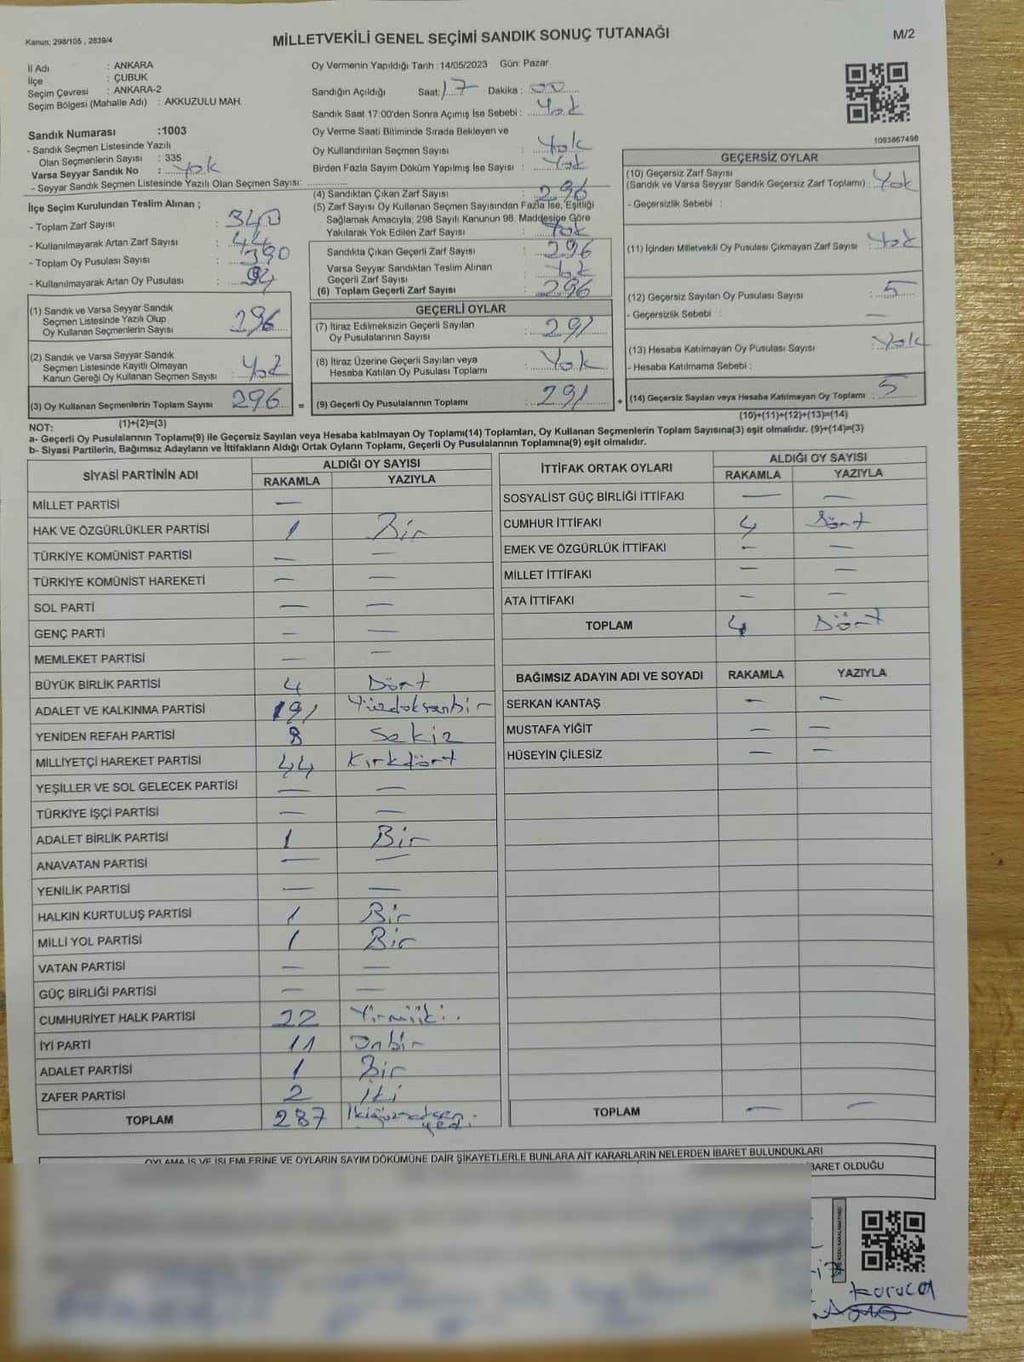 Kanun; 298/105 , 2839/4
MİLLETVEKİLİ GENEL SEÇİMİ SANDIK SONUÇ TUTANAĞI
M/2
İl Adı : ANKARA
İlçe : ÇUBUK
Seçim Çevresi : ANKARA-2
Seçim Bölgesi (Mahalle Adı) : AKKUZULU MAH.
Sandık Numarası :1003
- Sandık Seçmen Listesinde Yazılı
Olan Seçmenlerin Sayısı : 335
Varsa Seyyar Sandık No : Yok
- Seyyar Sandık Seçmen Listesinde Yazılı Olan Seçmen Sayısı:
İlçe Seçim Kurulundan Teslim Alınan ;
- Toplam Zarf Sayısı : 340
- Kullanılmayarak Artan Zarf Sayısı : 44
- Toplam Oy Pusulası Sayısı : 390
- Kullanılmayarak Artan Oy Pusulası : 94
(1) Sandık ve Varsa Seyyar Sandık
Seçmen Listesinde Yazılı Olup
Oy Kullanan Seçmenlerin Sayısı 296
(2) Sandık ve Varsa Seyyar Sandık
Seçmen Listesinde Kayıtlı Olmayan
Kanun Gereği Oy Kullanan Seçmen Sayısı : Yok
(3) Oy Kullanan Seçmenlerin Toplam Sayısı 296 =
Oy Vermenin Yapıldığı Tarih :14/05/2023 Gün: Pazar
Sandığın Açıldığı Saat: 17 Dakika : 00
Sandık Saat 17:00'den Sonra Açımış İse Sebebi : Yok
Oy Verme Saati Bitiminde Sırada Bekleyen ve
Oy Kullandırılan Seçmen Sayısı : Yok
Birden Fazla Sayım Döküm Yapılmış İse Sayısı : Yok
(4) Sandıktan Çıkan Zarf Sayısı : 296
(5) Zarf Sayısı Oy Kullanan Seçmen Sayısından Fazla İse, Eşitliği
Sağlamak Amacıyla; 298 Sayılı Kanunun 98. Maddesine Göre
Yakılarak Yok Edilen Zarf Sayısı : Yok
Sandıkta Çıkan Geçerli Zarf Sayısı : 296
Varsa Seyyar Sandıktan Teslim Alınan
Geçerli Zarf Sayısı : Yok
(6) Toplam Geçerli Zarf Sayısı : 296
GEÇERLİ OYLAR
(7) İtiraz Edilmeksizin Geçerli Sayılan
Oy Pusulalarının Sayısı : 291
(8) İtiraz Üzerine Geçerli Sayılan veya
Hesaba Katılan Oy Pusulası Toplamı : Yok
(9) Geçerli Oy Pusulalarının Toplamı : 291 +
1093867498
GEÇERSİZ OYLAR
(10) Geçersiz Zarf Sayısı
(Sandık ve Varsa Seyyar Sandık Geçersiz Zarf Toplamı) : Yok
- Geçersizlik Sebebi :
(11) İçinden Milletvekili Oy Pusulası Çıkmayan Zarf Sayısı : Yok
(12) Geçersiz Sayılan Oy Pusulası Sayısı : 5
- Geçersizlik Sebebi : —
(13) Hesaba Katılmayan Oy Pusulası Sayısı : Yok
- Hesaba Katılmama Sebebi :
(14) Geçersiz Sayılan veya Hesaba Katılmayan Oy Toplamı : 5
NOT: (1)+(2)=(3)
(10)+(11)+(12)+(13)=(14)
a- Geçerli Oy Pusulalarının Toplamı(9) ile Geçersiz Sayılan veya Hesaba katılmayan Oy Toplamı(14) Toplamları, Oy Kullanan Seçmenlerin Toplam Sayısına(3) eşit olmalıdır. (9)+(14)=(3)
b- Siyasi Partilerin, Bağımsız Adayların ve İttifakların Aldığı Ortak Oyların Toplamı, Geçerli Oy Pusulalarının Toplamına(9) eşit olmalıdır.
SİYASİ PARTİNİN ADI ALDIĞI OY SAYISI
RAKAMLA YAZIYLA
MİLLET PARTİSİ —
HAK VE ÖZGÜRLÜKLER PARTİSİ 1 Bir
TÜRKİYE KOMÜNİST PARTİSİ — —
TÜRKİYE KOMÜNİST HAREKETİ — —
SOL PARTİ — —
GENÇ PARTİ — —
MEMLEKET PARTİSİ — —
BÜYÜK BİRLİK PARTİSİ 4 Dört
ADALET VE KALKINMA PARTİSİ 191 Yüzdoksanbir
YENİDEN REFAH PARTİSİ 8 Sekiz
MİLLİYETÇİ HAREKET PARTİSİ 44 Kırkdört
YEŞİLLER VE SOL GELECEK PARTİSİ — —
TÜRKİYE İŞÇİ PARTİSİ — —
ADALET BİRLİK PARTİSİ 1 Bir
ANAVATAN PARTİSİ — —
YENİLİK PARTİSİ — —
HALKIN KURTULUŞ PARTİSİ 1 Bir
MİLLİ YOL PARTİSİ 1 Bir
VATAN PARTİSİ — —
GÜÇ BİRLİĞİ PARTİSİ — —
CUMHURİYET HALK PARTİSİ 22 Yirmiiki
İYİ PARTİ 11 Onbir
ADALET PARTİSİ 1 Bir
ZAFER PARTİSİ 2 İki
TOPLAM 287 İkiyüzseksen
yedi
İTTİFAK ORTAK OYLARI ALDIĞI OY SAYISI
RAKAMLA YAZIYLA
SOSYALİST GÜÇ BİRLİĞİ İTTİFAKI — —
CUMHUR İTTİFAKI 4 Dört
EMEK VE ÖZGÜRLÜK İTTİFAKI — —
MİLLET İTTİFAKI — —
ATA İTTİFAKI — —
TOPLAM 4 Dört
BAĞIMSIZ ADAYIN ADI VE SOYADI RAKAMLA YAZIYLA
SERKAN KANTAŞ — —
MUSTAFA YİĞİT — —
HÜSEYİN ÇİLESİZ — —
TOPLAM — —
OYLAMA İŞ VE İŞLEMLERİNE VE OYLARIN SAYIM DÖKÜMÜNE DAİR ŞİKAYETLERLE BUNLARA AİT KARARLARIN NELERDEN İBARET BULUNDUKLARI
BARET OLDUĞU